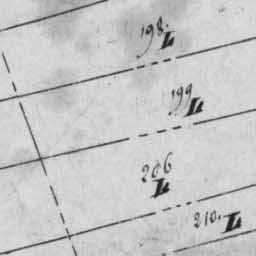 198.
L
199
L
206
L
210.
L